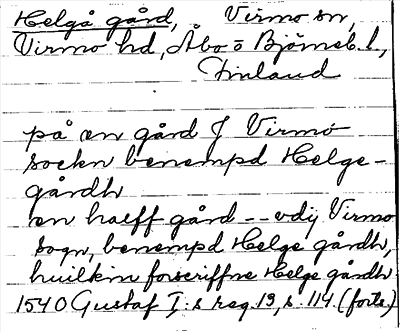 Helgå gård, Virmo sn,
Virmo hd, Åbo o Björneb. l.,
Finland
på en gård J Virmo
sockn benempd Helge-
gårdh
en halff gård -- vdij Virmo
sogn, benempd Helge gårdh,
huilkin forscriffne Helge gårdh
1540 Gustaf I:s reg. 13, s. 114. (forts.)